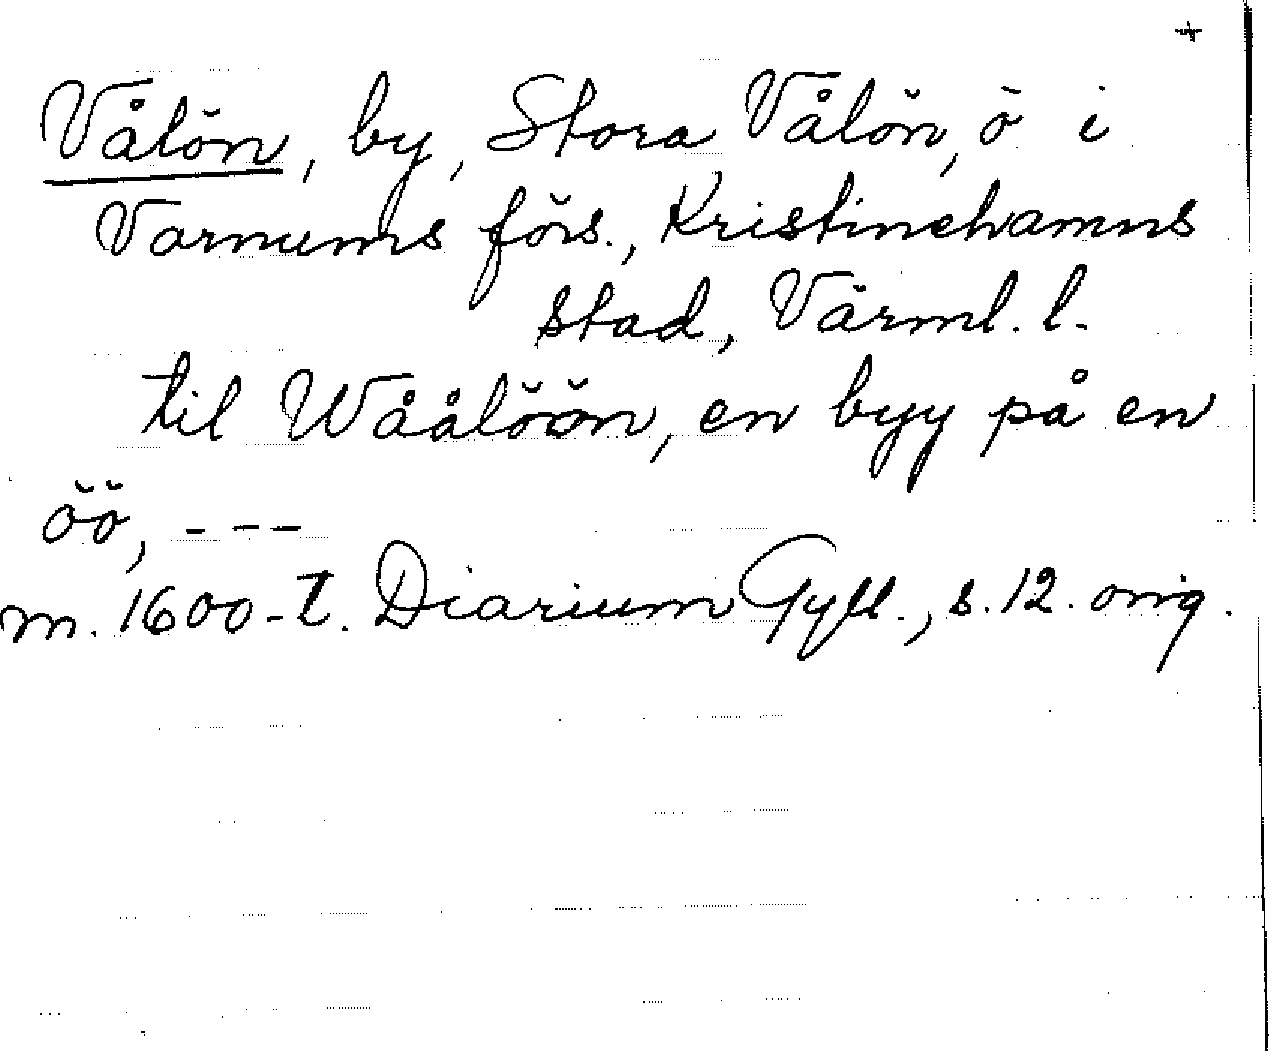 +
Vålön, by, Stora Vålön, ö i
Varnums förs., Kristinehamns
stad, Värml. l.
til Wåålöön, en byy på en
öö, - - -
m. 1600-t. Diarium Gyll., s. 12. orig.